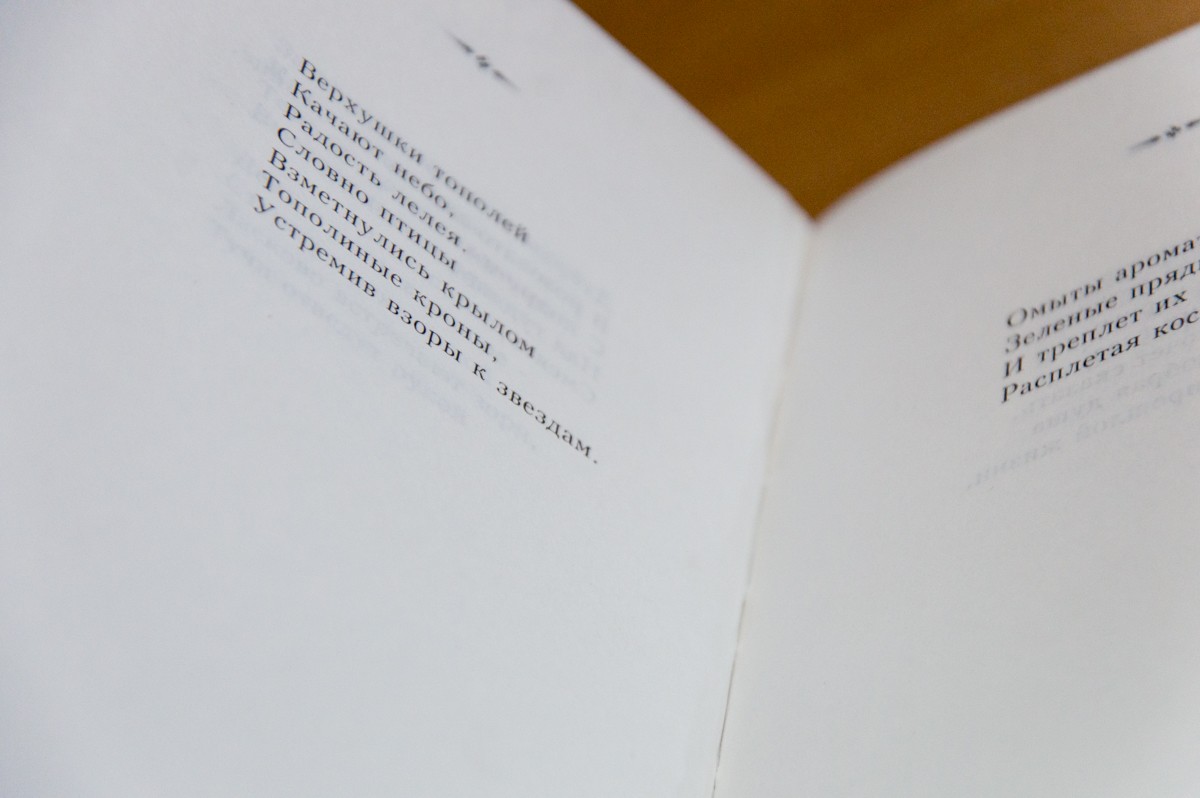 Верхушки тополей
Качают небо,
Радость лелея.
Словно птицы
Взметнулись крылом
Тополиные кроны,
Устремив взоры к звездам.
Омыты
Зеленые
И треплет их
Расплетая